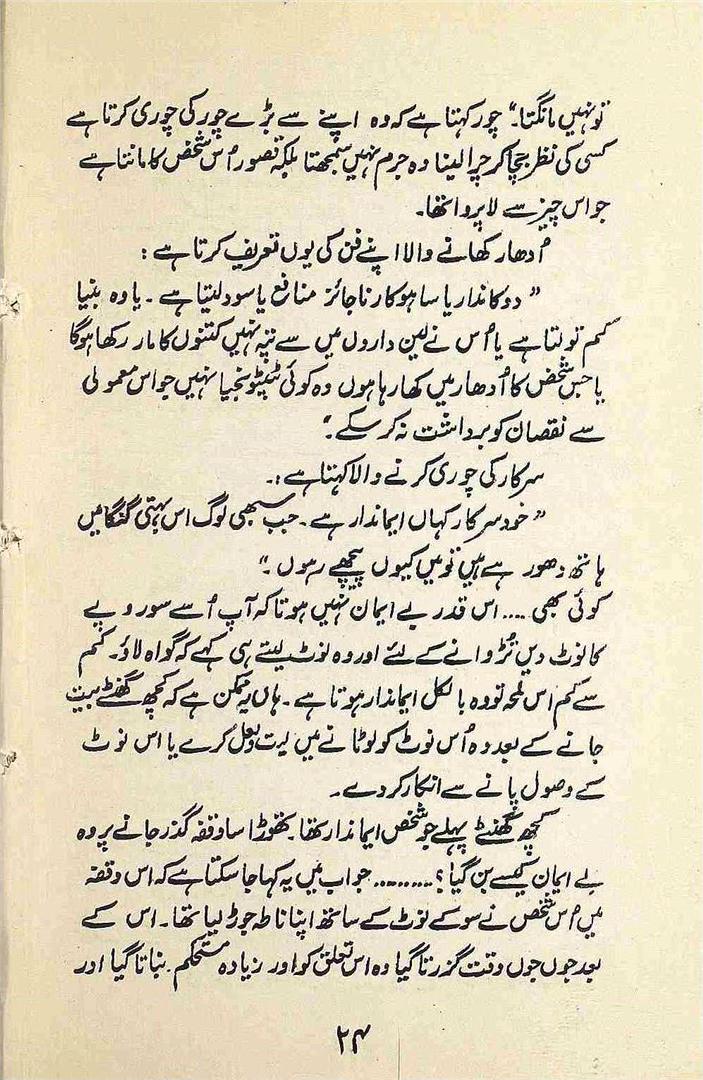 تو نہیں مانگتا۔“ چور کہتا ہے کہ وہ اپنے سے بڑے چور کی چوری کرتا ہے
کسی کی نظر بچا کر چرا لینا وہ جرم نہیں سمجھتا بلکہ قصور اُس شخص کا مانتا ہے
جو اس چیز سے لاپروا تھا۔
اُدھار کھانے والا اپنے فن کی یوں تعریف کرتا ہے :
”دوکاندار یا ساہوکار ناجائز منافع یا سود لیتا ہے ۔ یا وہ بنیا
کم تولتا ہے یا اُس نے لین داروں میں سے پتہ نہیں کتنوں کا مار رکھا ہوگا
یا جس شخص کا اُدھار میں کھا رہا ہوں وہ کوئی ٹٹپونجیا نہیں جو اس معمولی
سے نقصان کو برداشت نہ کر سکے۔“
سرکار کی چوری کرنے والا کہتا ہے :۔
”خود سرکار کہاں ایماندار ہے ۔ جب سبھی لوگ اس بہتی گنگا میں
ہاتھ دھو رہے ہیں تو میں کیوں پیچھے رہوں ۔“
کوئی بھی .... اس قدر بے ایمان نہیں ہوتا کہ آپ اُسے سو روپے
کا نوٹ دیں تُڑوانے کے لئے اور وہ نوٹ لیتے ہی کہے کہ گواہ لاؤ۔ کم
سے کم اس لمحہ تو وہ بالکل ایماندار ہوتا ہے ۔ ہاں یہ ممکن ہے کہ کچھ گھنٹے بیت
جانے کے بعد وہ اُس نوٹ کو لوٹانے میں لیت و لعل کرے یا اس نوٹ
کے وصول پانے سے انکار کر دے ۔
کچھ گھنٹے پہلے جو شخص ایماندار تھا۔ تھوڑا سا وقفہ گذر جانے پر وہ
بے ایمان کیسے بن گیا ؟ ......... جواب میں یہ کہا جا سکتا ہے کہ اس وقفہ
میں اُس شخص نے سو کے نوٹ کے ساتھ اپنا ناطہ جوڑ لیا تھا۔ اس کے
بعد جوں جوں وقت گزرتا گیا وہ اس تعلق کو اور زیادہ مستحکم بناتا گیا اور
۲۴